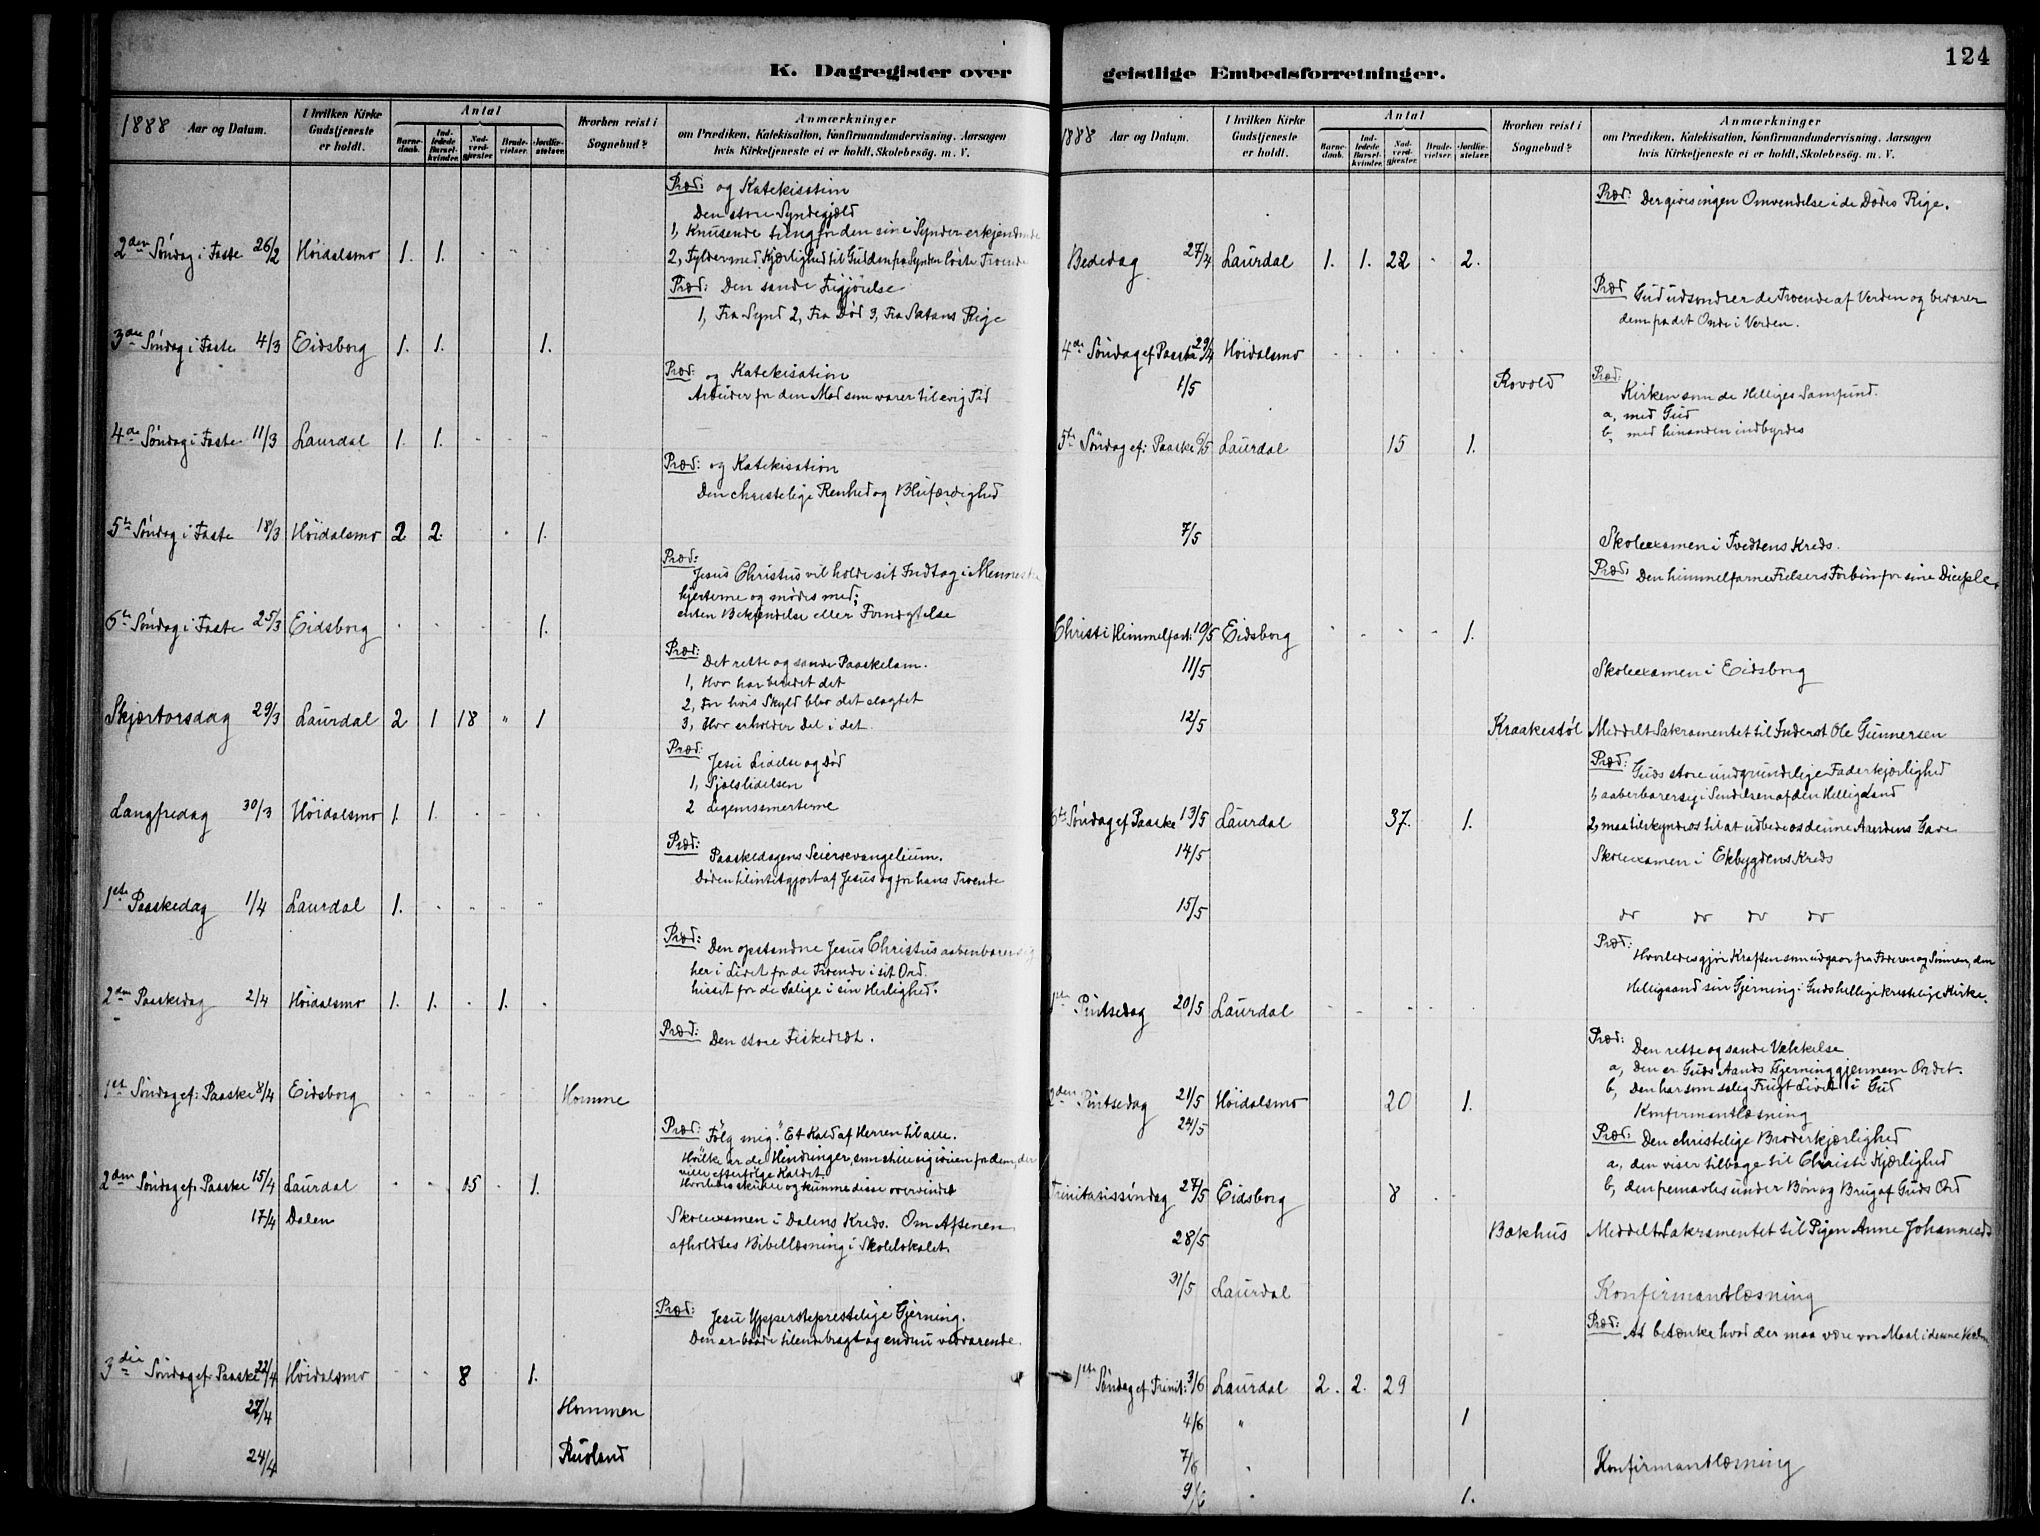 124
K. Dagregister over
1888 Aar og Datum.
I hvilken Kirke Gudstjeneste er holdt.
Antal
Barnedaab.
Indledede Barselkvinder.
Nadverdgjester
Brudevielser.
Jordfæstelser.
Hvorhen reist i Sognebud?
Anmærkninger
om Prædiken, Katekisation, Konfirmandundervisning. Aarsagen
hvis Kirketjeneste ei er holdt, Skolebesøg. m. V.
Præd: og Katekisation
Den store Syndegjæld
1, Knusende tung for den sine Synder erkjendende
2den Søndag i Faste 26/2 Høidalsmo 1. 1. 2, Fylder med Kjærlighed til Gud den fra Synden løste Troende
Præd: Den sande Frigjørelse
1, Fra Synd 2, Fra Død 3, Fra Satans Rige
3die Søndag i Faste 4/3 Eidsborg 1. 1. 1.
Præd: og Katekisation
Arbeider for den Mad som varer til evig Tid
4de Søndag i Faste 11/3 Laurdal 1. 1.
Præd: og Katekisation
Den christelige Renhed og Blufærdighed
5te Søndag i Faste 18/3 Høidalsmo 2 2. 1.
Præd: Jesus Christus vil holde sit Indtog i Menneske
hjerterne og mødes med;
enten Bekjendelse eller Fornægtelse
6te Søndag i Faste 25/3 Eidsborg 1.
Præd: Det rette og sande Paaskelam.
1, Hvor har beredet det
2, For hvis Skyld blev det slagtet
Skjærtorsdag 29/3 Laurdal 2 1 18 " 1 3, Hvor erholder Del i det.
Præd: Jesu Lidelse og Død
1, Sjælslidelsen
Langfredag 30/3 Høidalsmo 1. 1. 2 Legemssmerterne
Præd: Paaskedagens Seiersevangelium.
Døden tilintetgjort af Jesus og for hans Troende
1ste Paaskedag 1/4 Laurdal 1.
Præd: Den opstandne Jesus Christus aabenbarer sig
her i Livet for de Troende i sit Ord.
hisset for de Salige i sin Herlighed.
2den Paaskedag 2/4 Høidalsmo 1. 1. 1.
Præd: Den store Fiskedræt.
1ste Søndag ef: Paaske 8/4 Eidsborg Homme
Præd: "Følg mig." Et Kald af Herren til alle.
Hvilke er de Hindringer, som stille sig iveien for dem, der
ville efterfølge Kaldet
Hvorledes skulle og kunne disse overvindes
2den Søndag ef. Paaske 15/4 Laurdal 15 1.
17/4 Dalen Skoleexamen i Dalens Kreds. Om Aftenen
afholdtes Bibellæsning i Skolelokalet.
Præd: Jesu Ypperstepræstelige Gjerning.
Den er baade tilendebragt og endnu vedvarende.
3die Søndag ef. Paaske 22/4 Høidalsmo 8 1.
27/4 Hommen
24/4 Rusland
geistlige Embedsforretninger.
1888 Aar og Datum.
I hvilken Kirke Gudstjeneste er holdt.
Antal
Barnedaab.
Indledede Barselkvinder.
Nadverdgjester.
Brudevielser.
Jordfæstelser.
Hvorhen reist i Sognebud?
Anmærkninger
om Prædiken, Katekisation, Konfirmandundervisning. Aarsagen
hvis Kirketjeneste ei er holdt, Skolebesøg. m. V.
Præd: Der gives ingen Omvendelse i de Dødes Rige.
Bededag 27/4 Laurdal 1. 1. 22 2.
Præd Gud udsondrer de Troende af Verden og bevarer
dem fra det Onde i Verden.
4de Søndag ef Paaske 29/4 Høidalsmo
1/5 Rovold
Præd: Kirken som de Helliges Samfund.
a, med Gud
b, med hinanden indbyrdes
5te Søndag ef: Paaske 6/5 Laurdal 15 1.
7/5 Skoleexamen i Tvedtens Kreds.
Præd: Den himmelfarne Frelsers Forbøn for sine Disciple.
Christi Himmelfart: 10/5 Eidsborg 1.
11/5 Skoleexamen i Eidsborg
12/5 Kraakestøl Meddelt Sakramentet til Inderst Ole Gunnersen
Præd: Guds store uudgrundelige Faderkjærlighed
1, aabenbarer sig i Sendelsen af den Helligaand
6te Søndag ef Paaske 13/5 Laurdal 37. 1. 2, maa tilskynde os til at udbede os denne Aandens Gave
14/5 Skoleexamen i Ekbygdens Kreds
15/5 do do do do
Præd: Hvorledes gjør Kraften som udgaar fra Faderen og Sønnen, den
Helligaand sin Gjerning i Guds hellige kristelige Kirke.
1ste Pintsedag 20/5 Laurdal
Præd: Den rette og sande Vækkelse
a, Den er Guds Aands Gjerning gjennem Ordet.
b, Den har som salig Frugt Livet i Gud
2den Pintsedag 21/5 Høidalsmo 20 1.
24/5 Konfirmantlæsning
Præd: Den christelige Broderkjærlighed
a, den viser tilbage til Christi Kjærlighed
b, den fremavles under Bøn og Brug af Guds Ord
Trinitatissøndag 27/5 Eidsborg 8
28/5 Bakhus Meddelt Sakramentet til Pigen Anne Johannesd
31/5 Laurdal Konfirmantlæsning
Præd: At betænke hvad der maa være vor Maal i denne Verden
1ste Søndag ef Trinit: 3/6 Laurdal 2. 2. 29
4/6 " 1
7/6 " Konfirmantlæsning
9/6 " 1.